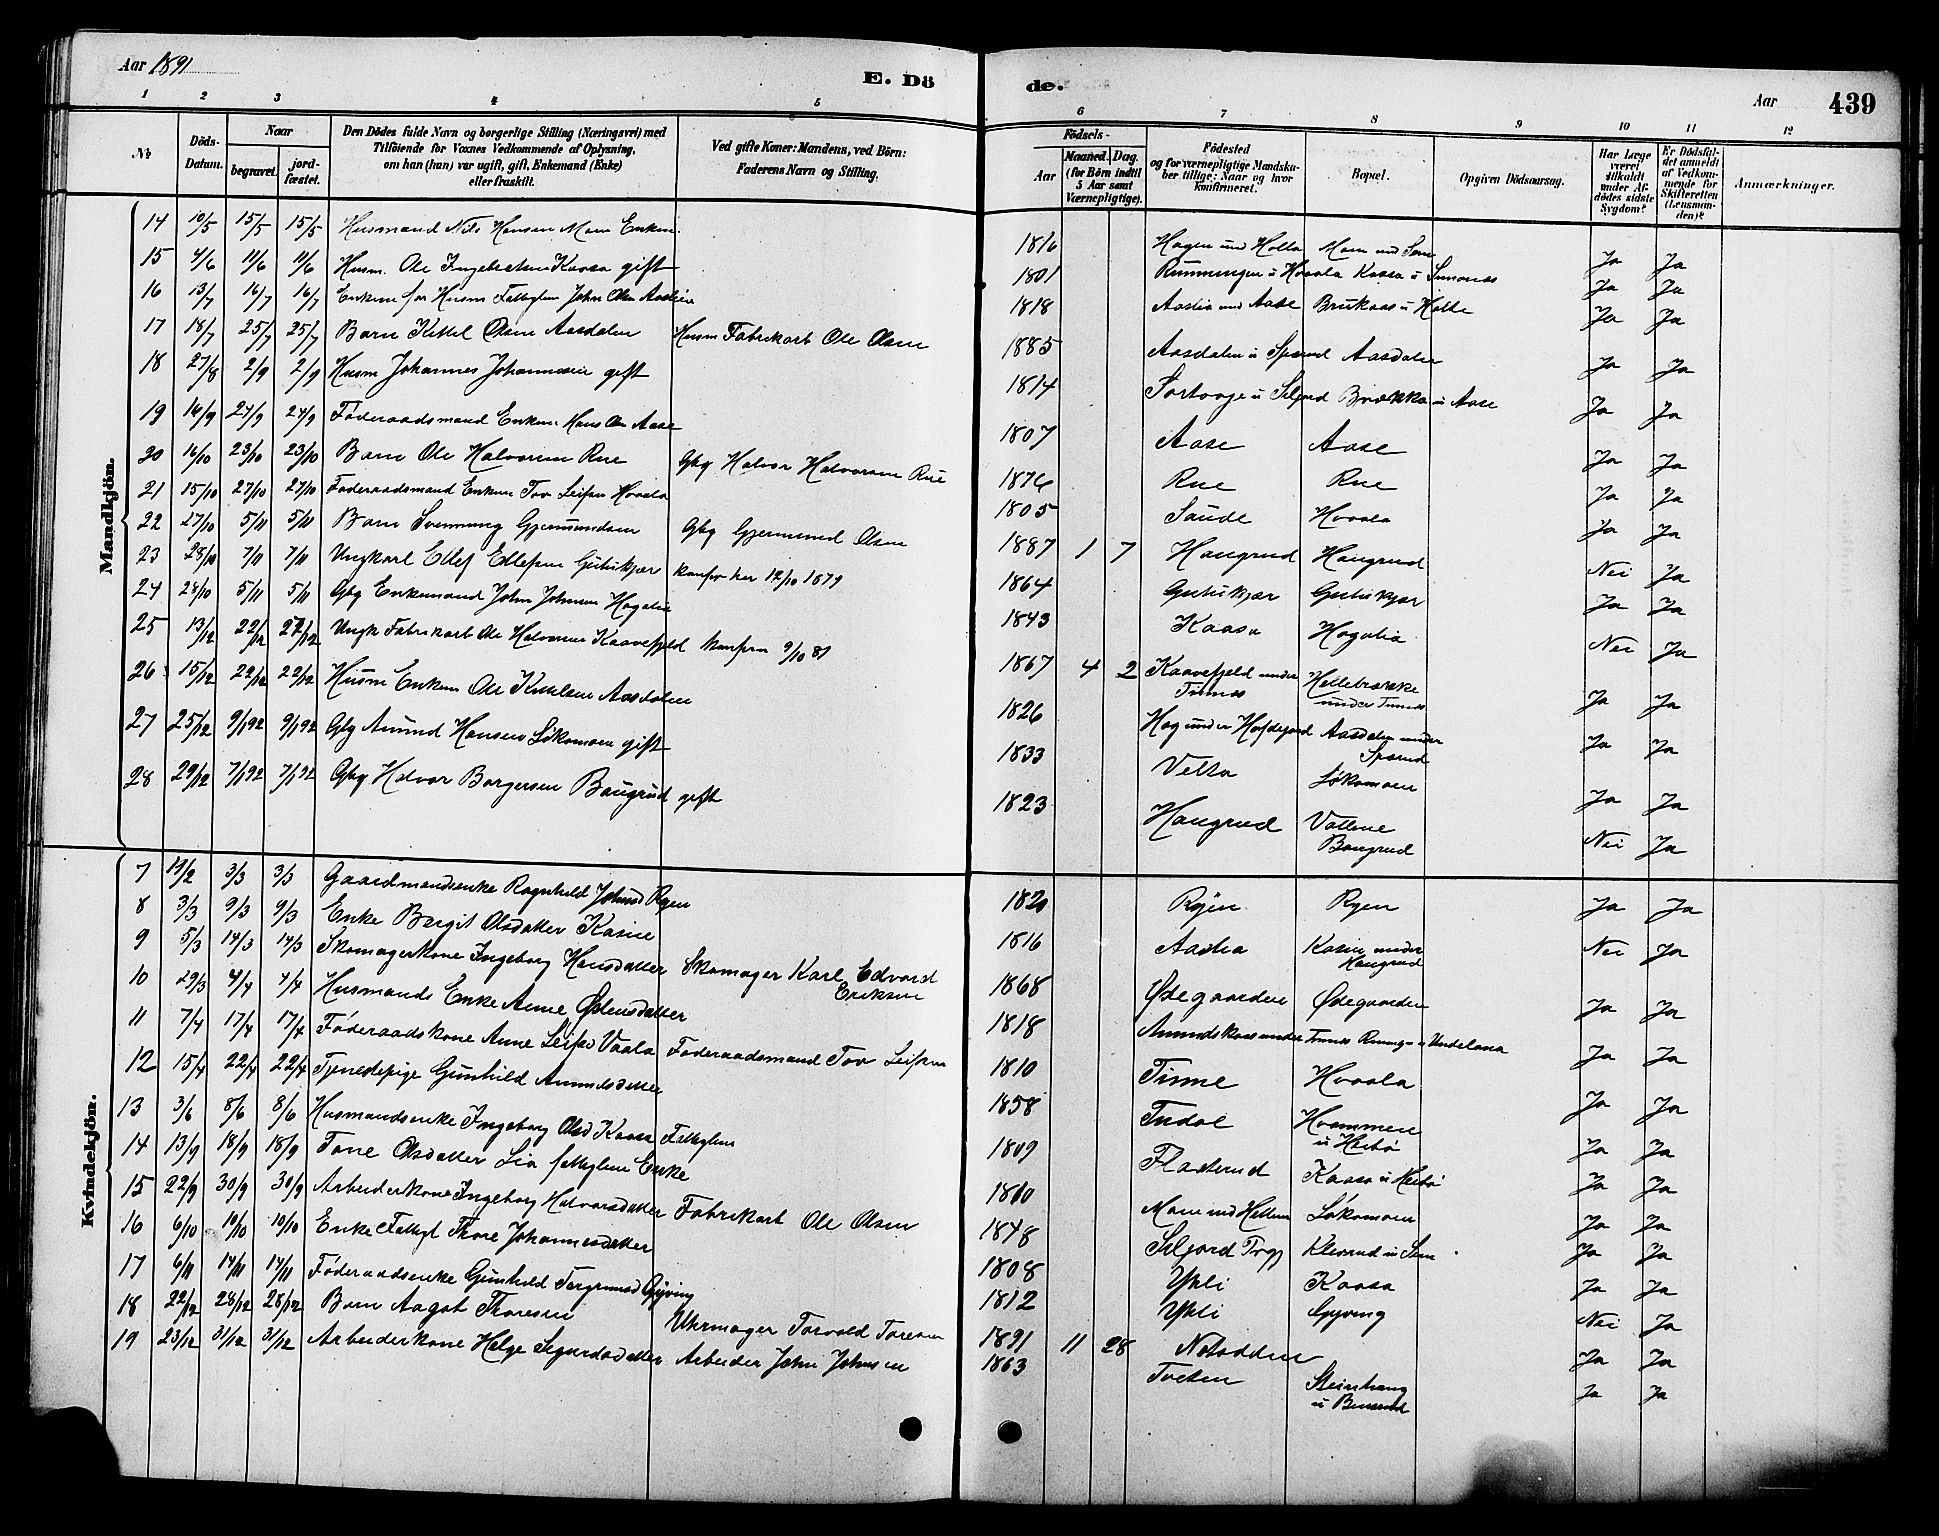 Aar 1891
E. Dö
de.
Aar 439
1 2 3 4 5 6 7 8 9 10 11 12
№
Döds-Datum.
Naar
begravet. jord-fæstet.
Den Dödes fulde Navn og borgerlige Stilling (Næringsvei) med
Tilföiende for Voxnes Vedkommende af Oplysning,
om han (hun) var ugift, gift, Enkemand (Enke)
eller fraskilt.
Ved gifte Koner: Mandens, ved Börn:
Faderens Navn og Stilling.
Födsels-
Aar Maaned. Dag.
(for Börn indtil
5 Aar samt
Værnepligtige).
Födested
og for værnepligtige Mandska-
ber tillige: Naar og hvor
konfirmeret.
Bopæl.
Opgiven Dödsaarsag.
Har Læge
været
tilkaldt
under Af-
dödes sidste
Sygdom?
Er Dödsfal-
det anmeldt
af Vedkom-
mende for
Skifteretten
(Lensman-
den)?
Anmærkninger.
Mandkjön.
14 10/5 15/5 15/5 Husmand Nils Hansen Moen Enkem. 1816 Hagen und Holta Moen und Sem Ja Ja
15 4/6 11/6 11/6 Husm. Ole Ingebretsen Kaasa gift 1801 Runningen u Hovala Kaasa u Ja Ja
16 13/7 16/7 16/7 Enkem for Husm Fattiglem John Olsen Aaslien 1818 Aaslia und Aase Brukaas u Holte Ja Ja
17 18/7 25/7 25/7 Barn Kittil Olsen Aasdalen Husm Fabrikarb Ole Olsen 1885 Aasdalen u Sparud Aasdalen Ja Ja
18 27/8 2/9 2/9 Husm Johannes Johannesen gift 1814 u Seljord Brækka u Aase Ja Ja
19 16/9 24/9 24/9 Föderaadsmand Enkem Hans Olsen Aase 1807 Aase Aase Ja Ja
20 16/10 23/10 23/10 Barn Ole Halvorsen Rue Gbg Halvor Halvorsen Rue 1876 Rue Rue Ja Ja
21 15/10 27/10 27/10 Foderaadsmand Enkem Tov Leifsen Hovala 1805 Saude Hovala Ja Ja
22 27/10 5/11 5/11 Barn Svennung Gjermundsen Gbg Gjermund Olsen 1887 1 7 Haugrud Haugrud Nei Ja
23 28/10 7/11 7/11 Ungkarl Ellef Ellefsen Gutukjær konfir her 12/10 1879 1864 Gutukjær Gutukjær Ja Ja
24 28/10 5/11 5/11 Gbg Enkemand John Johnsen Hogalia 1843 Kaasa Hogalia Nei Ja
25 13/12 22/12 22/12 Ungk Fabrikarb Ole Halvorsen Kaavefjeld konfirm 9/10 81 1867 4 2 Kaavefjeld under Tinnes Hellebrække under Tinnes Ja Ja
26 15/12 22/12 22/12 Husm Enkem Ole Kittilsen Aasdalen 1826 Hog under Aasdalen under Sparud Ja Ja
27 25/12 9/1 92 9/1 92 Gbg Amund Hansen Løkamoen gift 1833 Velta Løkamoen Ja Ja
28 29/12 7/1 92 7/1 92 Gbg Halvor Borgersen Baugrud gift 1823 Haugrud Vollene Baugrud Nei Ja
Kvindekjön.
7 19/2 3/3 3/3 Gaardmandsenke Ragnhild Johnsd Ryen 1820 Ryen Ryen Ja Ja
8 3/3 9/3 9/3 Enke Bergit Olsdatter Kasin 1816 Aaslia Kasin under Haugrud Nei Ja
9 5/3 14/3 14/3 Skomagerkone Ingeborg Hansdatter Skomager Karl Edvard Eriksen 1868 Ødegaarden Ødegaarden Ja Ja
10 29/3 4/4 4/4 Husmands Enke Anne Østensdatter 1818 Amundskaas under Tinnes Ja Ja
11 7/4 17/4 17/4 Föderaadskone Anne Leifsd Vaala Foderaadsmand Tov Leifsen 1810 Tinne Hovala Ja Ja
12 15/4 22/4 22/4 Tjenestepige Gunhild Amundsdatter 1858 Tudal Hvammen u Heibø Ja Ja
13 3/6 8/6 8/6 Husmandsenke Ingeborg Olsd Kaasa Fattiglem 1809 Flaterud Kaasa u Heibø Ja Ja
14 13/9 18/9 18/9 Tone Olsdatter Lia fattiglem Enke 1810 Moen und Løkamoen Ja Ja
15 22/9 30/9 30/9 Arbeiderkone Ingeborg Halvorsdatter Fabrikarb Ole Olsen 1848 Seljord Klevrud u Sem Ja Ja
16 6/10 10/10 10/10 Enke Fattigl Thore Johannesdatter 1808 Ykli Kaasa Ja Ja
17 6/11 14/11 14/11 Föderaadsenke Gunhild Torgrimsd Gryving 1812 Ykli Gryving Nei Ja
18 22/12 28/12 28/12 Barn Aagot Thoresen Uhrmager Torvald Toresen 1891 11 28 Notodden Ja Ja
19 23/12 31/12 31/12 Arbeiderkone Helge Sigurdsdatter Arbeider John Johnsen 1863 Tveten Steinhaug u Ja Ja